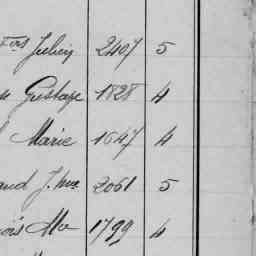 Julien 2407 5
Gustave 1828 4
Marie 1647 4
aud J. 2061 5
çois Me 1799 4